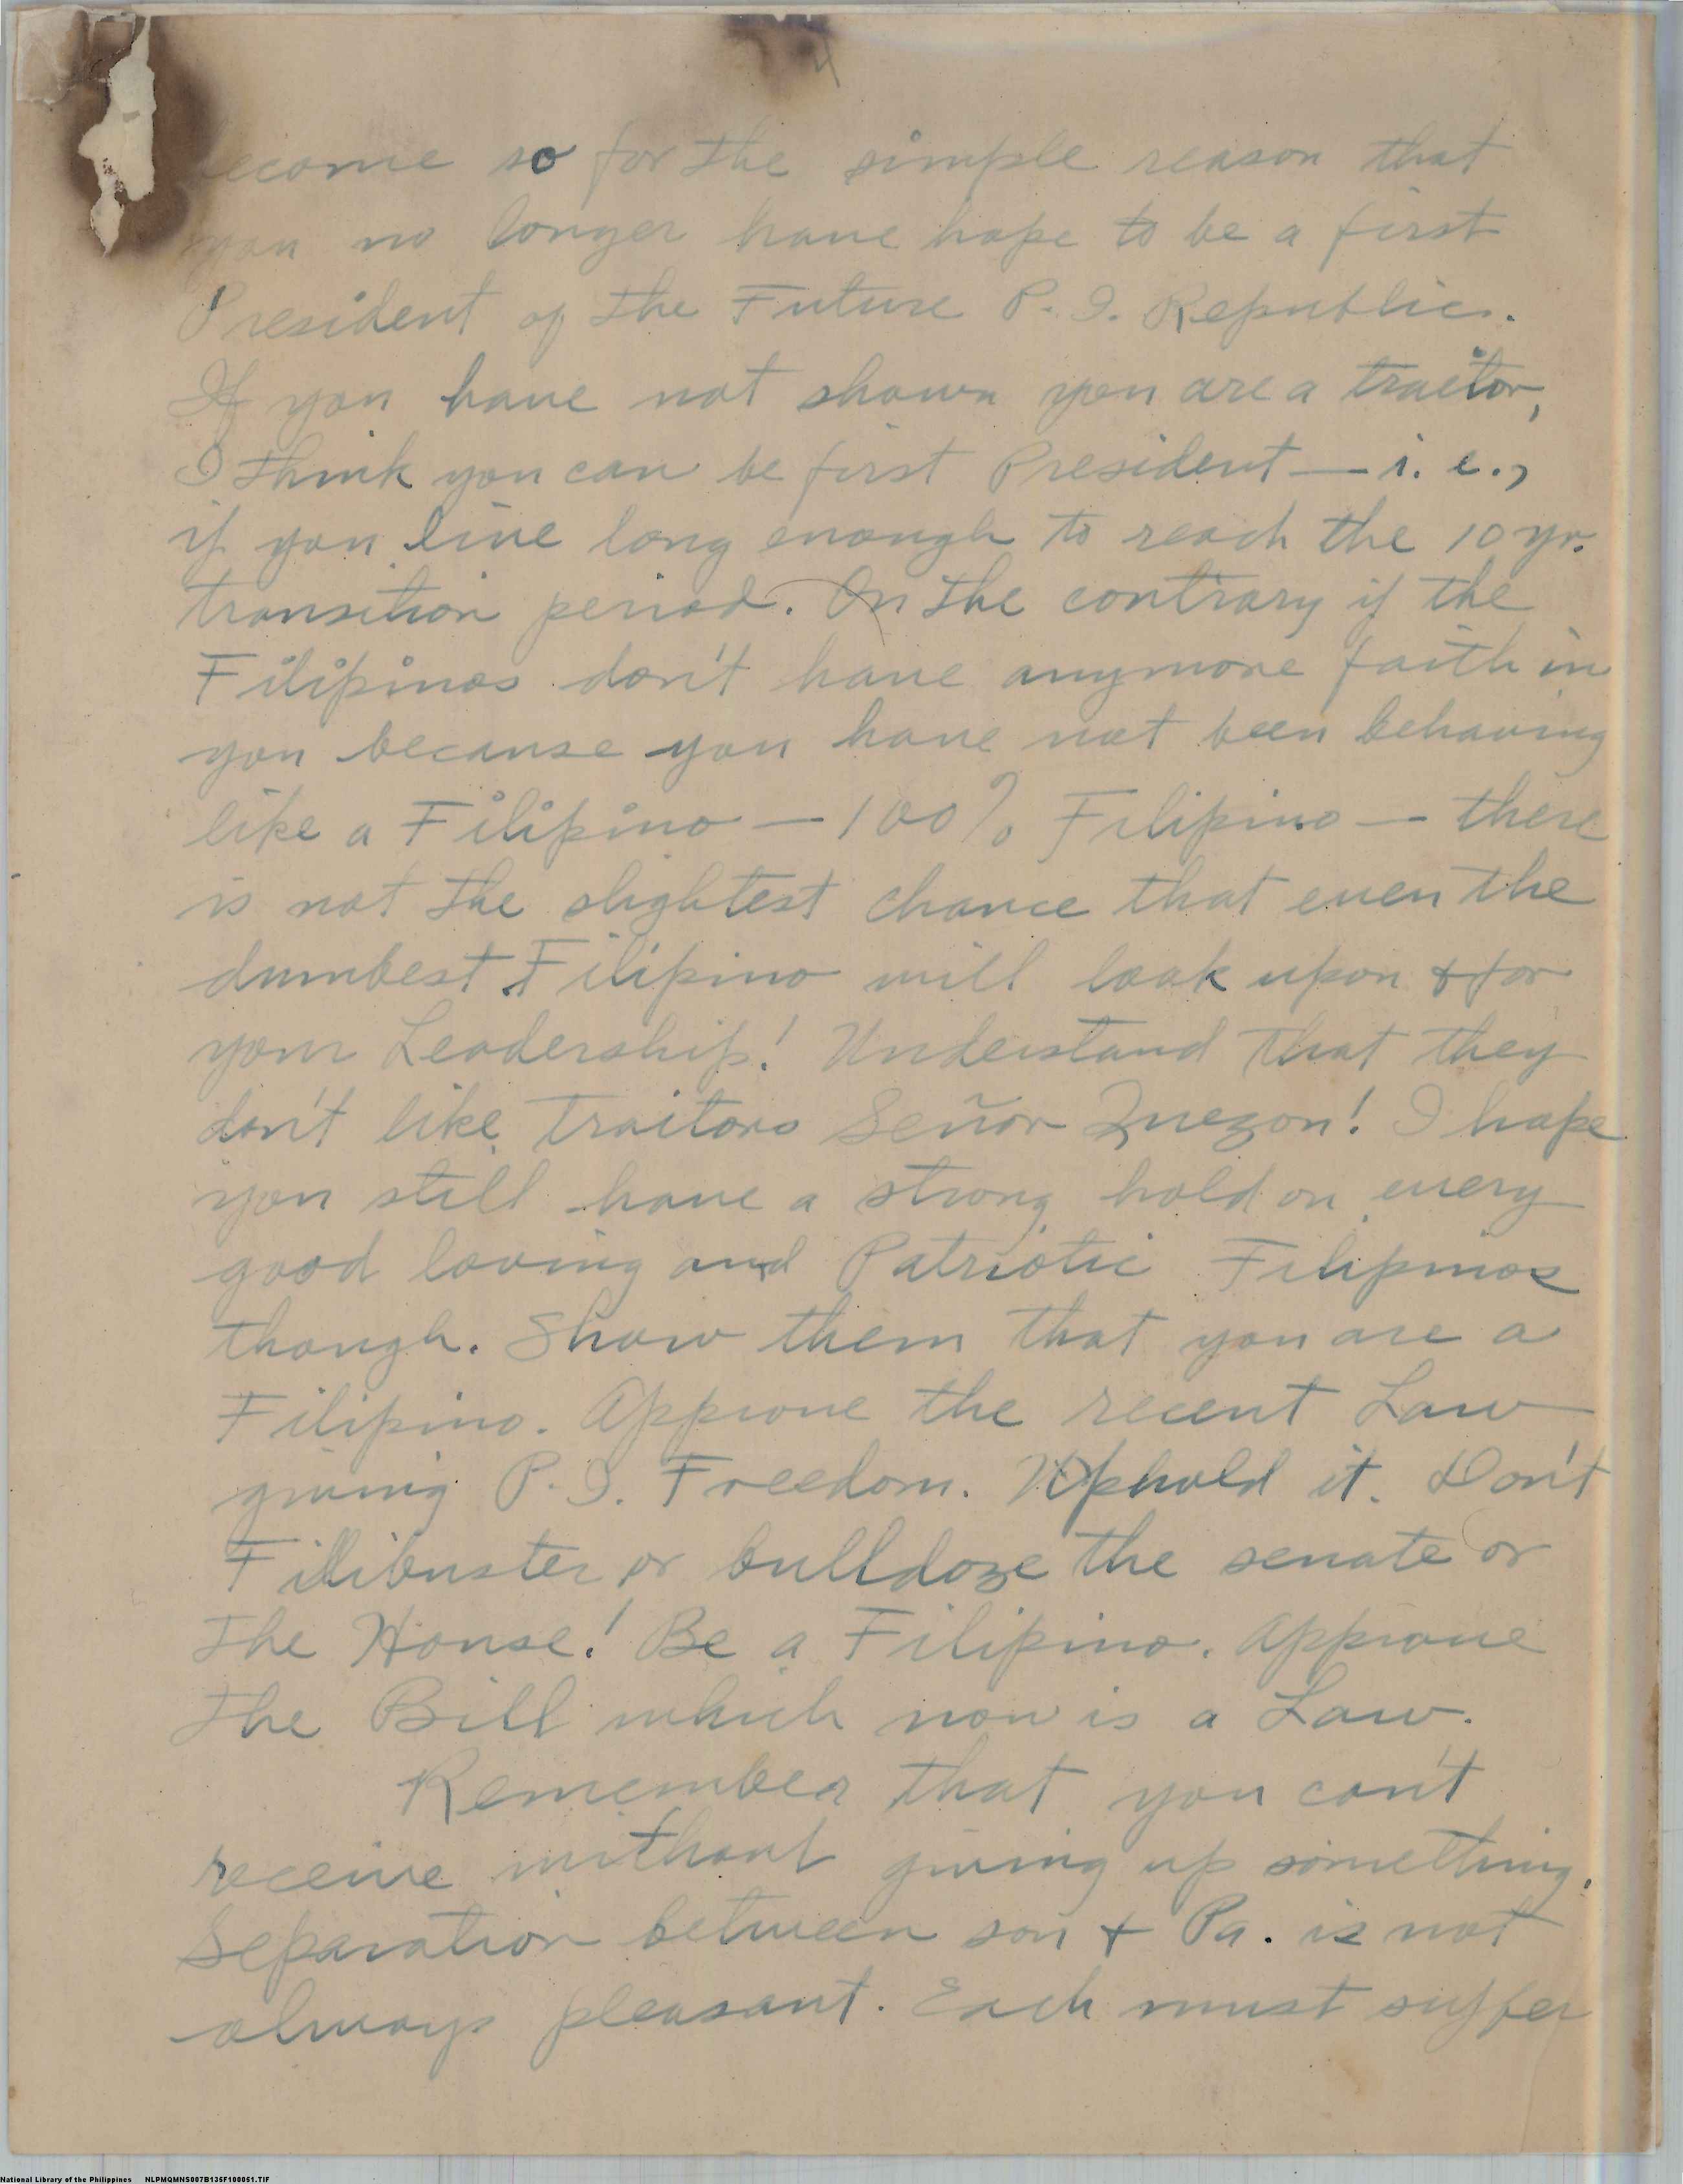 become so for the simple reason that
you no longer have hope to be a first
President of the Future P. I. Republic.
If you have not shown you are a traitor,
I think you can be first President — i. e.,
if you live long enough to reach the 10 yr.
transition period. On the contrary if the
Filipinos don't have anymore faith in
you because you have not been behaving
like a Filipino — 100% Filipino — there
is not the slightest chance that even the
dumbest Filipino will look upon & for
your Leadership! Understand that they
don't like traitors Señor Quezon! I hope
you still have a strong hold on every
good loving and Patriotic Filipinos
though. Show them that you are a
Filipino. Approve the recent Law
giving P. I. Freedom. Uphold it. Don't
Filibuster or bulldoze the senate or
the House! Be a Filipino. Approve
the Bill which now is a Law.
Remember that you can't
receive without giving up something.
Separation between son & Pa. is not
always pleasant. Each must suffer
National Library of the Philippines NLPMQMNS007B135F100051.TIF